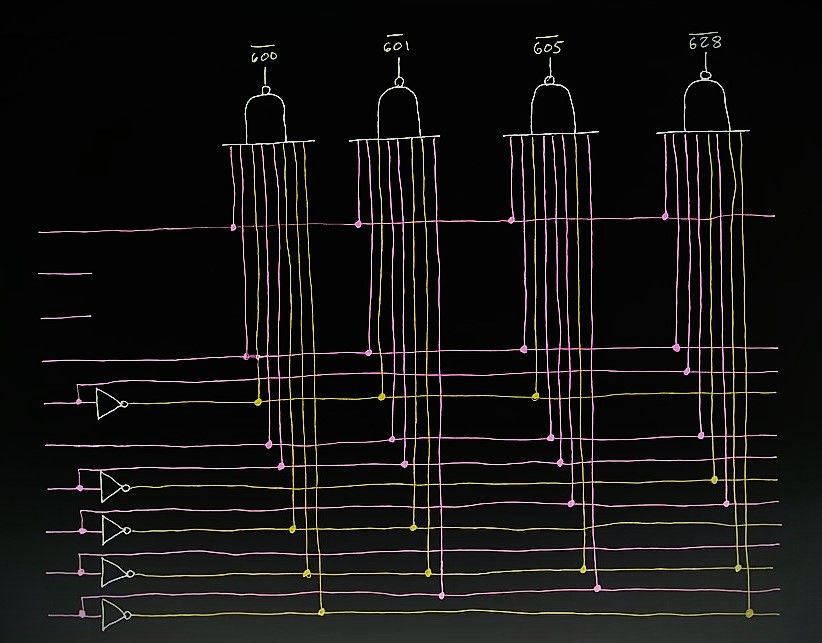 6̅0̅0̅ 6̅0̅1̅ 6̅0̅5̅ 6̅2̅8̅